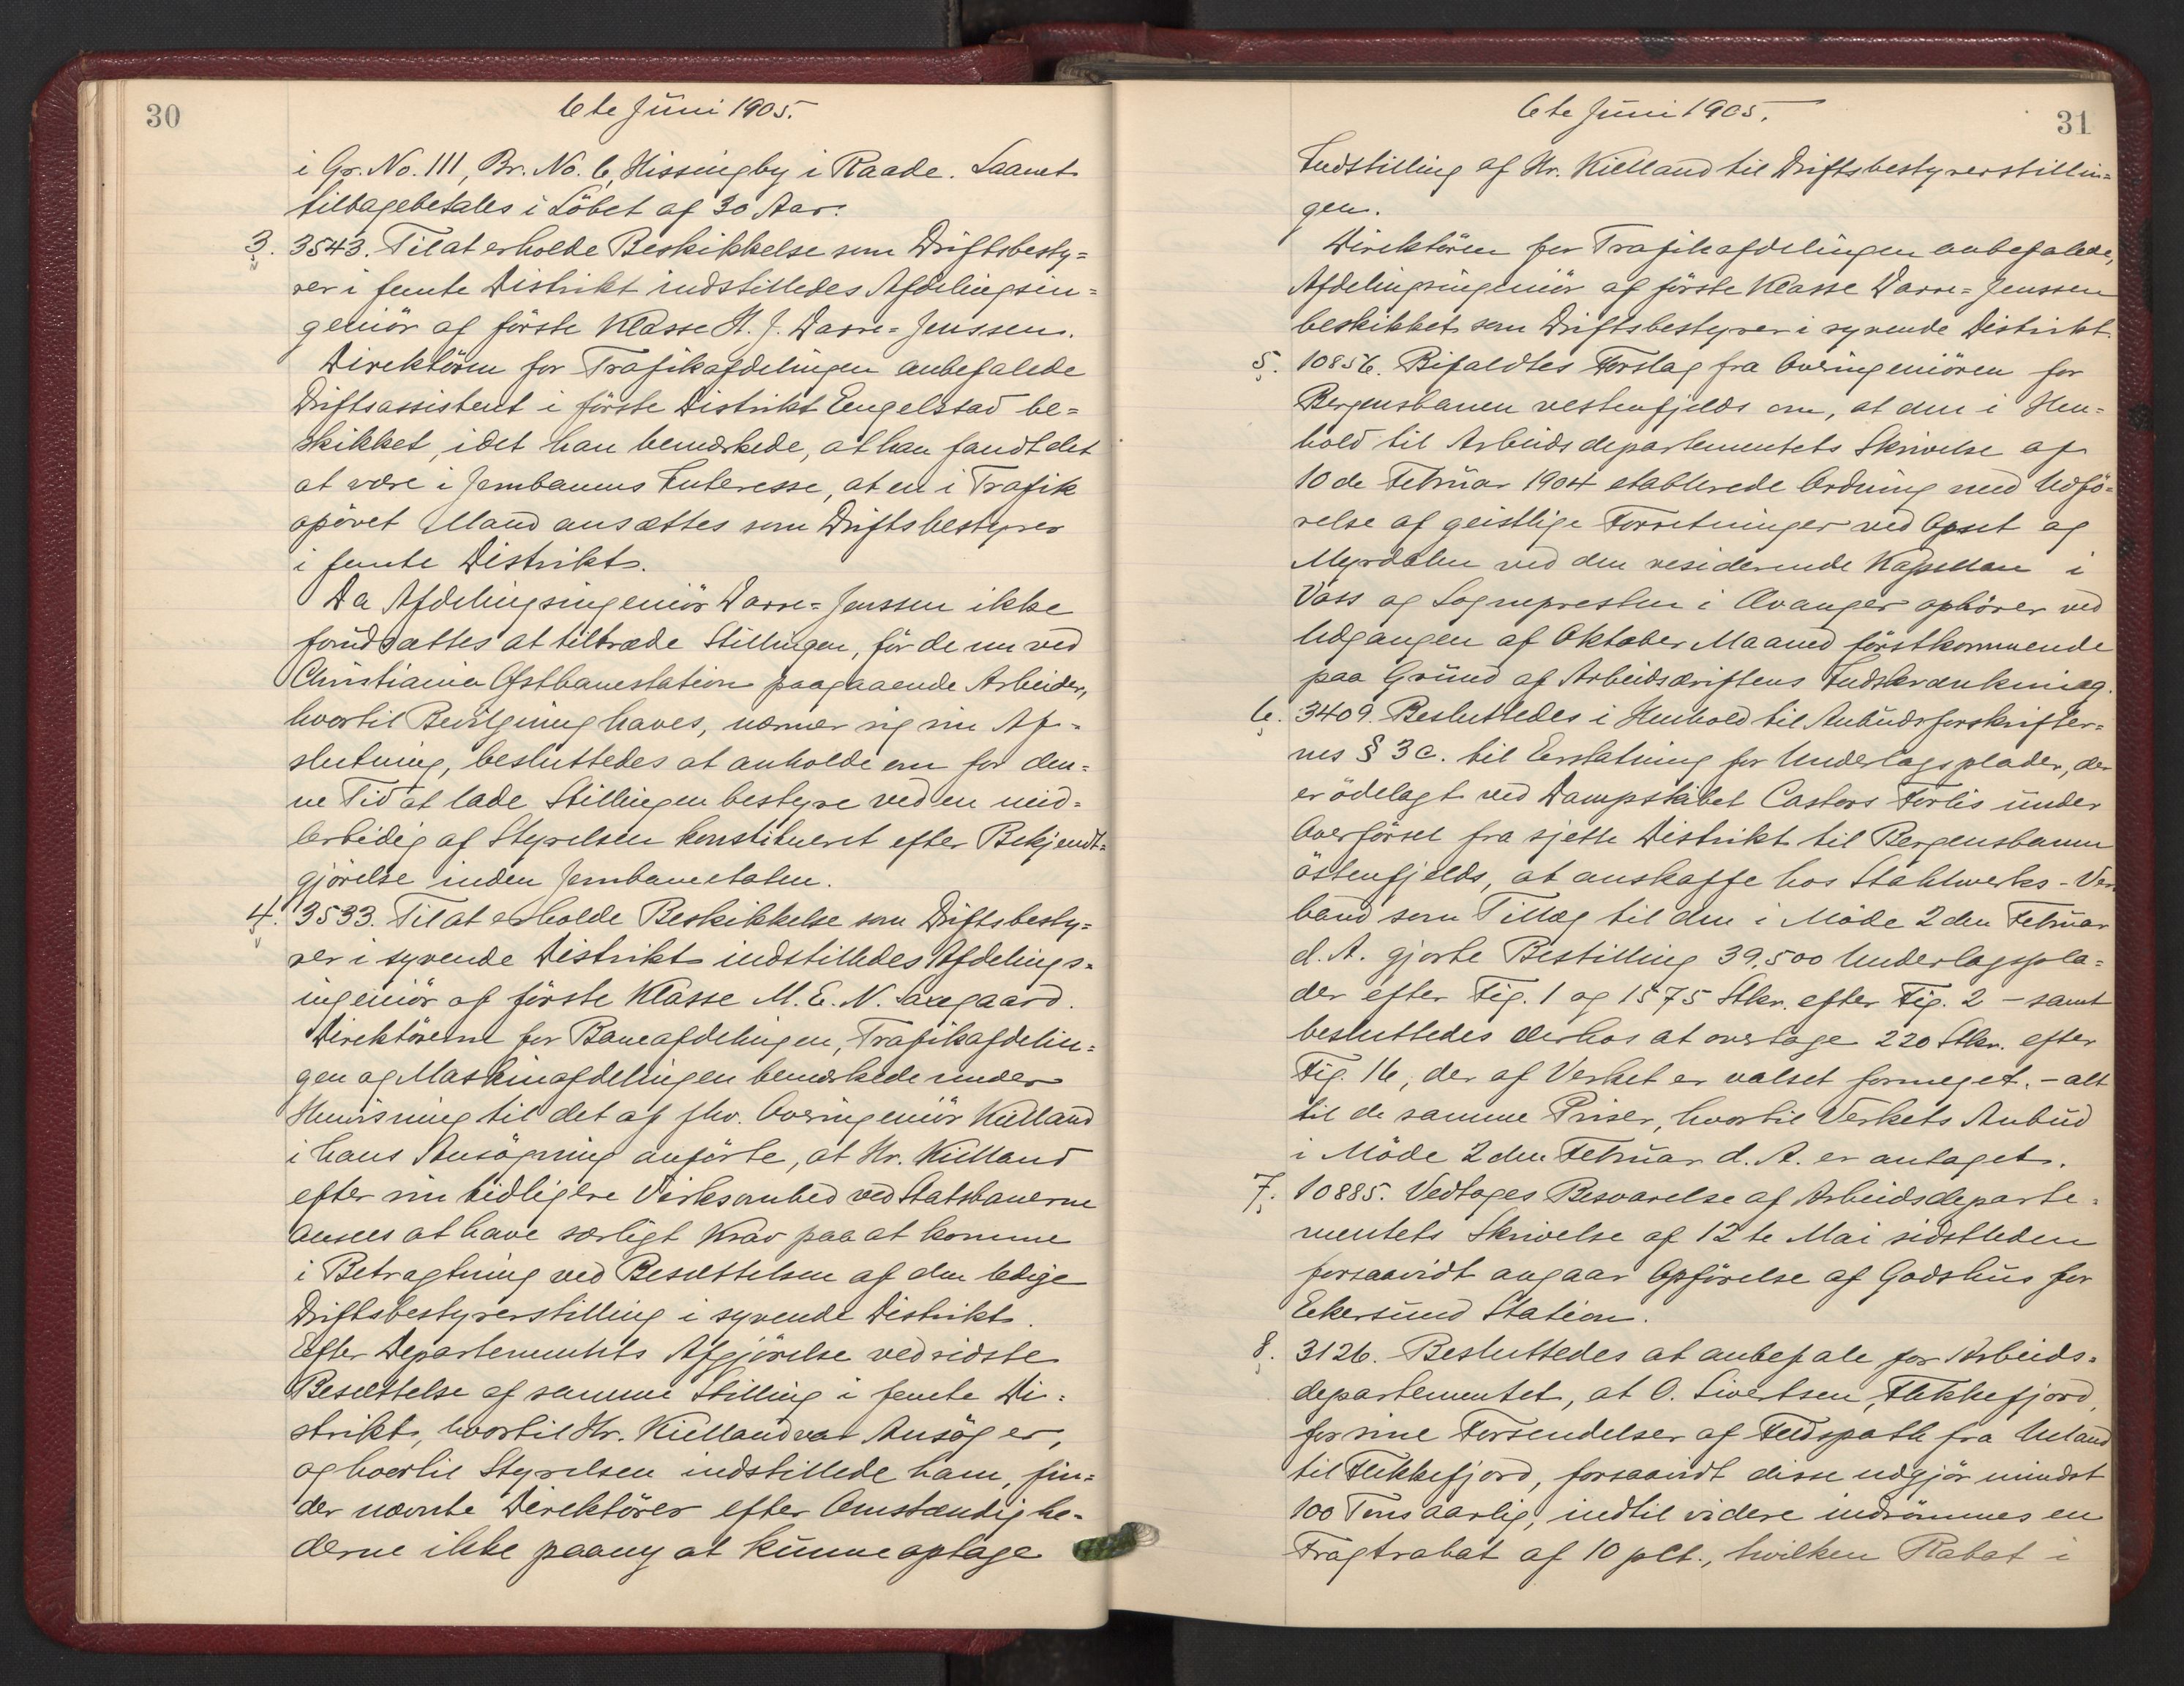 30
6te Juni 1905.
i Gr. No. 111, Br. No. 6, Missingby i Raade. Laanet
tilbagebetales i Löbet af 30 Aar.
3. 3543. Til at erholde Beskikkelse som Driftsbesty=
rer i femte Distrikt indstilledes Afdelingsin=
geniör af förste Klasse H. J. Darre=Jenssen.
Direktören for Trafikafdelingen anbefalede
Driftsassistent i förste Distrikt Engelstad be=
skikket, idet han bemærkede, at han fandt det
at være i Jernbanens Interesse, at en i Trafik
opövet Mand ansættes som Driftsbestyrer
i femte Distrikt.
Da Afdelingsingeniör Darre=Jenssen ikke
forudsættes at tiltræde Stillingen, för de nu ved
Christiania Østbanestation paagaaende Arbeider,
hvortil Bevilgning haves, nærmer sig sin Af=
slutning, besluttedes at anholde om for den=
ne Tid at lade Stillingen bestyre ved en mid=
lertidig af Styrelsen konstitueret efter Bekjendt=
gjörelse inden Jernbanetaten.
4. 3533. Til at erholde Beskikkelse som Driftsbesty=
rer i syvende Distrikt indstilledes Afdelings=
ingeniör af förste Klasse M. E. N. Saxegaard.
Direktörerne for Baneafdelingen, Trafikafdelin=
gen og Maskinafdelingen bemærkede under
Henvisning til det af fhv. Overingeniör Kielland
i hans Ansögning anförte, at Hr. Kielland
efter sin tidligere Virksomhed ved Statsbanerne
ansees at have særligt Krav paa at komme
i Betragtning ved Besættelsen af den ledige
Driftsbestyrerstilling i syvende Distrikt.
Efter Departementets Afgjörelse ved sidste
Besættelse af samme Stilling i femte Di=
strikt, hvortil Hr. Kielland var Ansöger,
og hvortil Styrelsen indstillede ham, fin=
der nævnte Direktörer efter Omstændighe=
derne ikke paany at kunne optage
31
6te Juni 1905.
Indstilling af Hr. Kielland til Driftsbestyrerstillin=
gen.
Direktören for Trafikafdelingen anbefalede,
Afdelingsingeniör af förste Klasse Darre=Jenssen
beskikket som Driftsbestyrer i syvende Distrikt.
5. 10856. Bifaldtes Forslag fra Overingeniören for
Bergensbanen vestenfjelds om, at den i Hen=
hold til Arbeidsdepartementets Skrivelse af
10de Februar 1904 etablerede Ordning med Udfö=
relse af geistlige Forretninger ved Opset og
Myrdalen ved den residerende Kapellan i
Voss og Sognepresten i Evanger ophörer ved
Udgangen af Oktober Maaned förstkommende
paa Grund af Arbeidsdriftens Indskrænkning.
6. 3409. Besluttedes i Henhold til Anbudsforskrifter=
nes § 3c. til Erstatning for Underlagsplader, der
er ödelagt ved Dampskibet Castors Forlis under
Overförsel fra sjette Distrikt til Bergensbanen
östenfjelds, at anskaffe hos Stahlwerks-Ver
band som Tillæg til den i Möde 2den Februar
d. A. gjorte Bestilling 39,500 Underlagspla=
der efter Fig. 1 og 1575 Stkr. efter Fig. 2 – samt
besluttedes derhos at overtage 220 Stkr. efter
Fig. 16, der af Verket er valset formeget, – alt
til de samme Priser, hvortil Verkets Anbud
i Möde 2den Februar d. A. er antaget.
7. 10885. Vedtoges Besvarelse af Arbeidsdeparte=
mentets Skrivelse af 12te Mai sidstleden
forsaavidt angaar Opförelse af Godshus for
Ekersund Station.
8. 3126. Besluttedes at anbefale for Arbeids=
departementet, at O. Sivertsen, Flekkefjord,
for sine Forsendelser af Feldspath fra Ueland
til Flekkefjord, forsaavidt disse udgjör mindst
100 Tons aarlig, indtil videre indrömmes en
Fragtrabat af 10 pCt., hvilken Rabat i